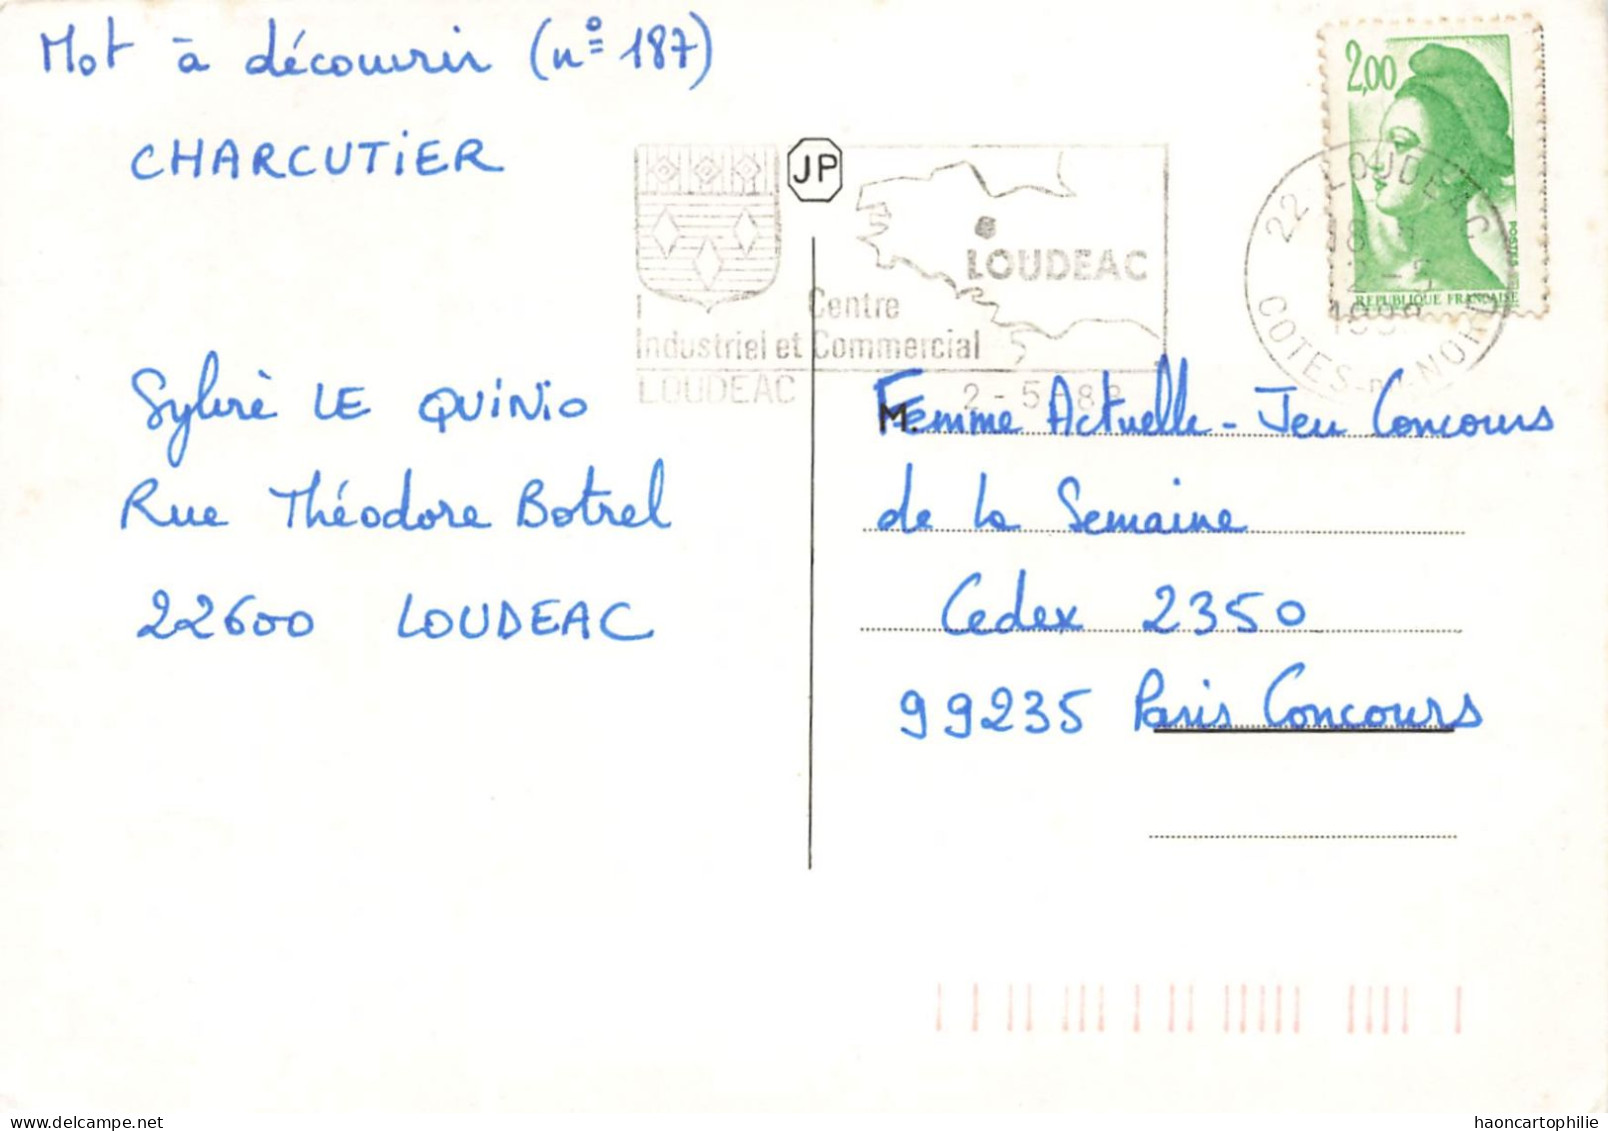 Mot à découvrir (n° 187)
CHARCUTIER
2,00
POSTES
REPUBLIQUE FRANÇAISE
JP
LOUDEAC
Centre
Industriel et Commercial
LOUDEAC
2-5-88
22 LOUDEAC
COTES-DU-NORD
Sylvie LE QUINIO
Rue Théodore Botrel
22600 LOUDEAC
M.
Femme Actuelle - Jeu Concours
de la Semaine
Cedex 2350
99235 Paris Concours
haoncartophilie